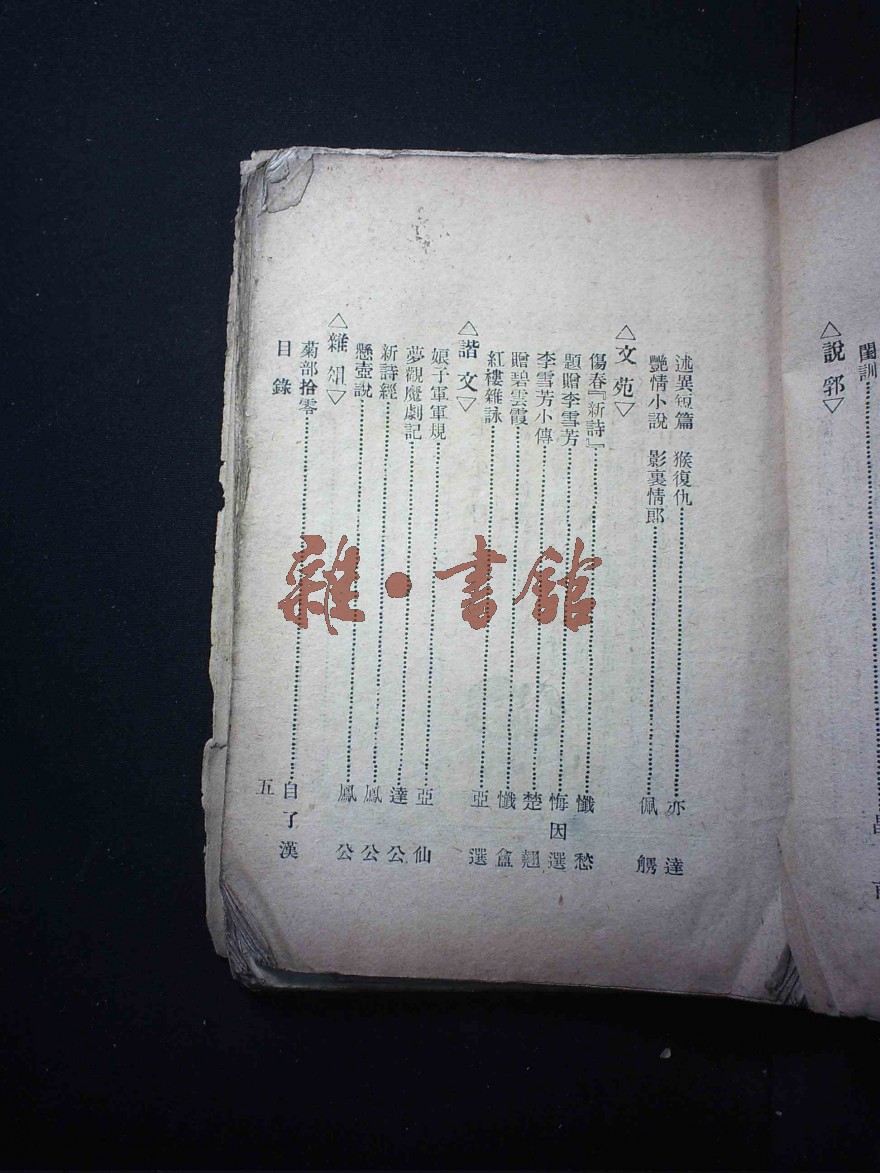 △說郛▽
閨訓
述異短篇 猴復仇 亦達
艷情小說 影裏情郎 佩觽
△文苑▽
傷春『新詩』 懺愁
題贈李雪芳 悔因選
李雪芳小傳 楚翹
贈碧雲霞 懺盦
紅樓雜詠 亞選
△諧文▽
娘子軍軍規 亞仙
夢觀魔劇記 達公
新詩經 鳳公
懸壺說 鳳公
△雜俎▽
菊部拾零 自了漢
目錄 五
雜·書館